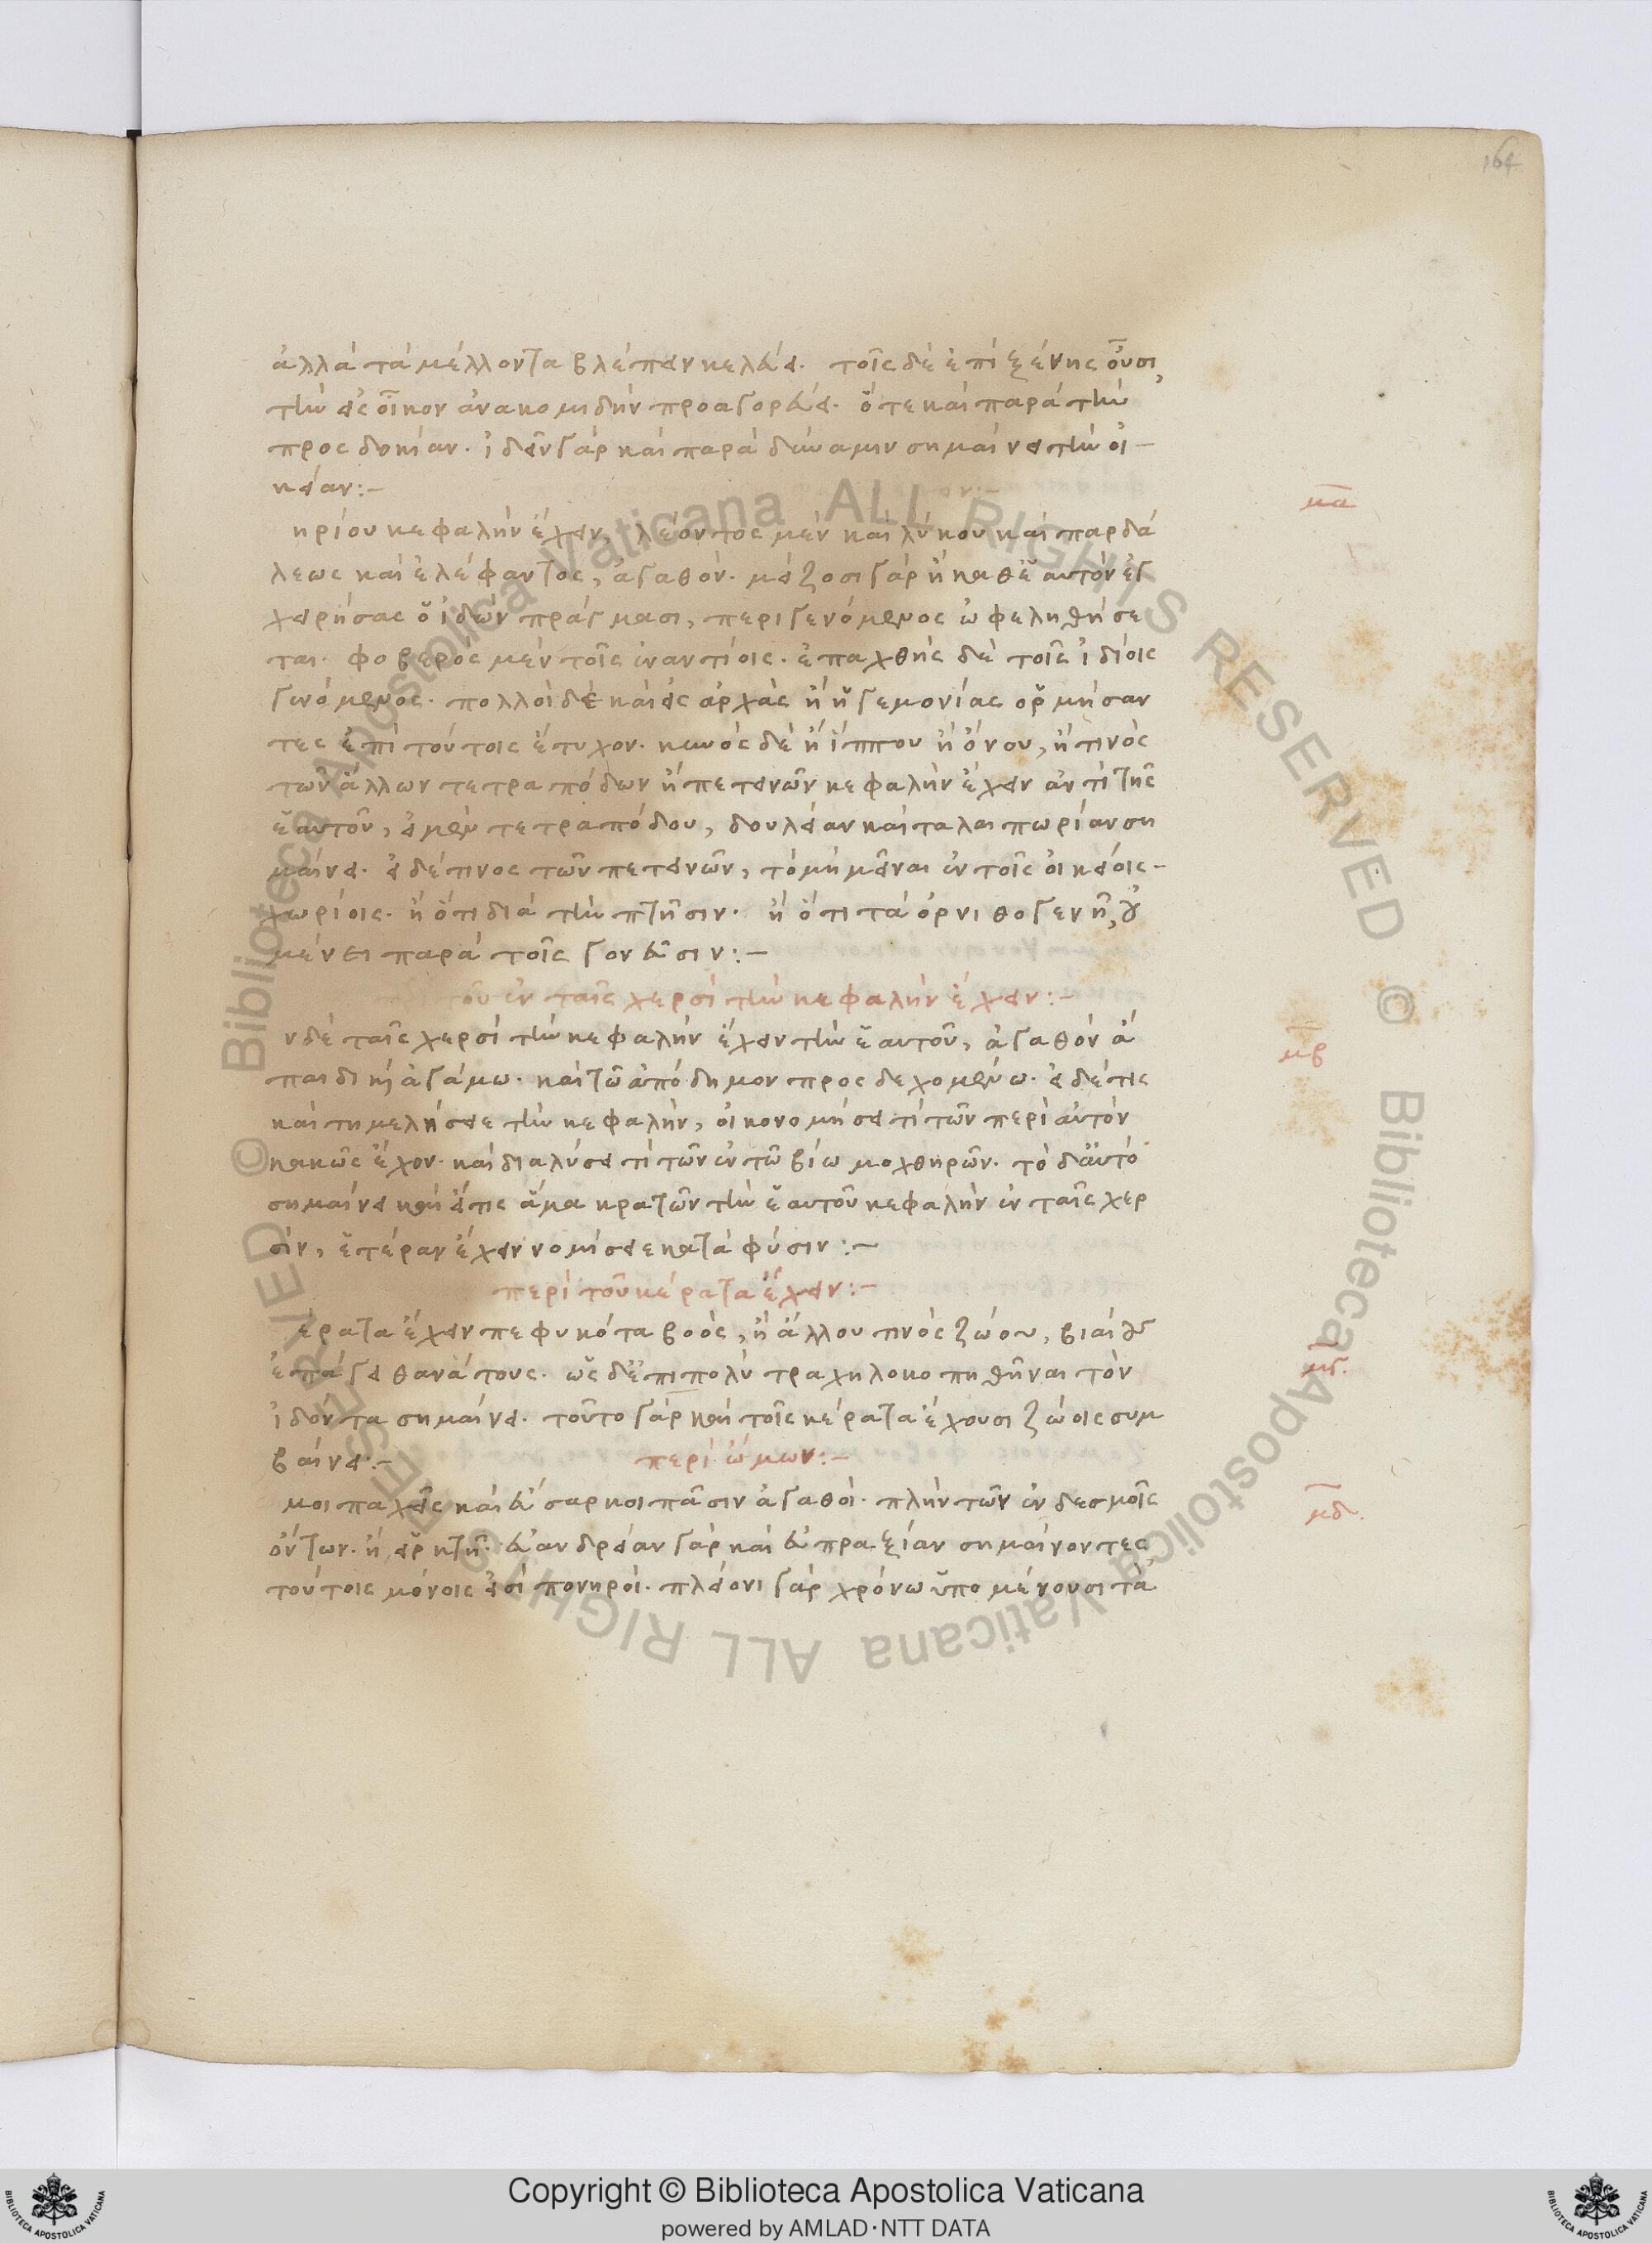 164
ἀλλὰ τὰ μέλλοντα βλέπειν κελεύει. τοῖς δὲ ἐπὶ ξένης οὖσι,
τὴν εἰς οἶκον ἀνακομιδὴν προαγορεύει. ὅτε καὶ παρὰ τὴν
προςδοκίαν. ἰδεῖν γὰρ καὶ παρὰ δύναμιν σημαίνει τὴν οἰ-
κείαν:-
μα
ηρίου κεφαλὴν ἔχειν, λέοντος μὲν καὶ λύκου καὶ παρδά
λεως καὶ ἐλέφαντος, ἀγαθόν. μείζοσι γὰρ ἢ καθ ἑαυτὸν ἐγ
χειρήσας ὁ ἰδὼν πράγμασι, περιγενόμενος ὠφεληθήσε
ται. φοβερὸς μὲν τοῖς ἐναντίοις. ἐπαχθὴς δὲ τοῖς ἰδίοις
γινόμενος. πολλοὶ δὲ καὶ εἰς ἀρχὰς ἢ ἡγεμονίας ὁρμήσαν
τες ἐπὶ τούτοις ἔτυχον. κυνὸς δὲ ἢ ἵππου ἢ ὄνου, ἤ τινος
τῶν ἄλλων τετραπόδων ἢ πετεινῶν κεφαλὴν ἔχειν ἀντὶ τῆς
ἑαυτοῦ, εἰ μὲν τετραπόδου, δουλείαν καὶ ταλαιπωρίαν ση
μαίνει. εἰ δέ τινος τῶν πετεινῶν, τὸ μὴ μεῖναι ἐν τοῖς οἰκείοις-
χωρίοις. ἢ ὅτι διὰ τὴν πτῆσιν. ἢ ὅτι τὰ ὀρνιθογενῆ, οὐ
μένει παρὰ τοῖς γονεῦσιν:-
τοῦ ἐν ταῖς χερσὶ τὴν κεφαλὴν ἔχειν:-
μβ
ν δὲ ταῖς χερσὶ τὴν κεφαλὴν ἔχειν τὴν ἑαυτοῦ, ἀγαθὸν ἀ
παιδι καὶ ἀγάμω. καὶ τῶ ἀπόδημον προςδεχομένω. εἰ δέ τις
καὶ τημελήσειε τὴν κεφαλὴν, οἰκονομήσει τί τῶν περὶ αὐτὸν
κακῶς ἔχον. καὶ διαλύσει τί τῶν ἐν τῶ βίω μοχθηρῶν. τὸ δαὐτὸ
σημαίνει καὶ εἴ τις ἅμα κρατῶν τὴν ἑαυτοῦ κεφαλὴν ἐν ταῖς χερ
σὶν, ἑτέραν ἔχειν νομίσειε κατὰ φύσιν:-
περὶ τοῦ κέρατα ἔχειν:-
μγ.
έρατα ἔχειν πεφυκότα βοὸς, ἢ ἄλλου τινὸς ζώου, βιαίους
ἐπάγει θανάτους. ὡς δἐπιπολὺ τραχηλοκοπηθῆναι τὸν
ἰδόντα σημαίνει. τοῦτο γὰρ καὶ τοῖς κέρατα ἔχουσι ζώοις συμ
βαίνει:- περὶ ὤμων:-
μδ.
μοι παχεῖς καὶ εὔσαρκοι πᾶσιν ἀγαθοί. πλὴν τῶν ἐν δεσμοῖς
ὄντων. ἢ εἱρκτῆ. εὐανδρείαν γὰρ καὶ εὐπραξίαν σημαίνοντες
τούτοις μόνοις εἰσὶ πονηροί. πλείονι γὰρ χρόνω ὑπομένουσι τὰ
© Biblioteca Apostolica Vaticana ALL RIGHTS RESERVED © Biblioteca Apostolica Vaticana ALL RIGHTS RESERVED
Copyright © Biblioteca Apostolica Vaticana
powered by AMLAD·NTT DATA
BIBLIOTECA APOSTOLICA VATICANA
BIBLIOTECA APOSTOLICA VATICANA